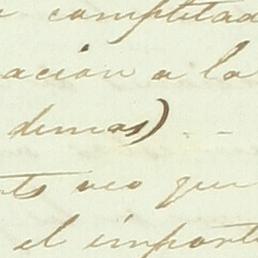 completad
ación a la
demas)
veo que
el import